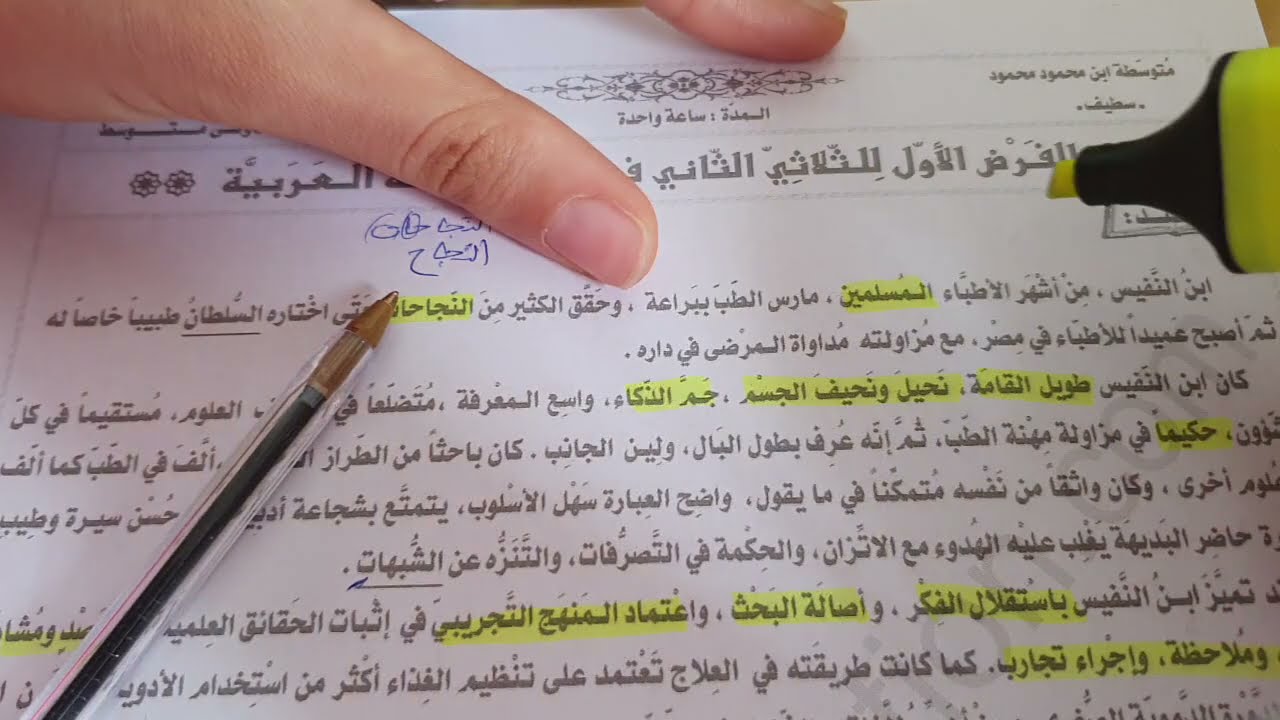 مُتوسّطة ابن محمود محمود
ـ سطيف ـ
الـمدّة : ساعة واحدة
الفَرْض الأوّل لِلثّلاثِيّ الثّاني العَرَبيَّة
النجاح
ابنُ النَّفيس ، مِنْ أشْهَر الأطبَّاء الـمُسلمين ، مارس الطّبّ بِبَراعة ، وحَقَّق الكثير مِنَ النّجاحات حَتّى اخْتاره السُّلطانُ طبيباً خاصاً له
ثمّ أصبح عَميداً للأطبّاء في مِصْر، مع مُزاولته مُداواة الـمرْضى في داره .
كان ابن النَّفيس طويل القامَة، نَحيلَ ونَحيفَ الجسْم ، جَمَّ الذّكاء، واسِع الـمعْرفة ،مُتَضلّعاً في العلوم، مُستقيماً في كلّ
حكيماً في مزاولة مِهْنة الطّبّ، ثُمَّ إنّه عُرِف بطول البَال، ولِين الجانِب . كان باحثاً من الطّراز ألَّفَ في الطّبّ كما ألّف
أخرى ، وكان واثقاً من نَفْسه مُتمكّناً في ما يقول، واضِح العِبارة سَهْل الأسْلوب، يتمتَّع بشجاعة حُسْن سيرة وطِيب
حاضر البَديهَة يَغْلِب عليْه الهُدوء مع الاتّزان، والحِكْمة في التَّصرُّفات، والتَّنَزُّه عن الشُّبهات .
تميَّز ابـنُ النَّفيس باسْتقلال الفِكْر ، و أصالَة البَحْث ، واعْتماد الـمَنهَج التَّجريبيّ في إثْبات الحَقائق العِلميّة
ومُلاحظة، وإجْراء تجارب. كما كانت طريقته في العِلاج تَعْتمد على تنْظيم الغِذاء أكْثر من اسْتخدام